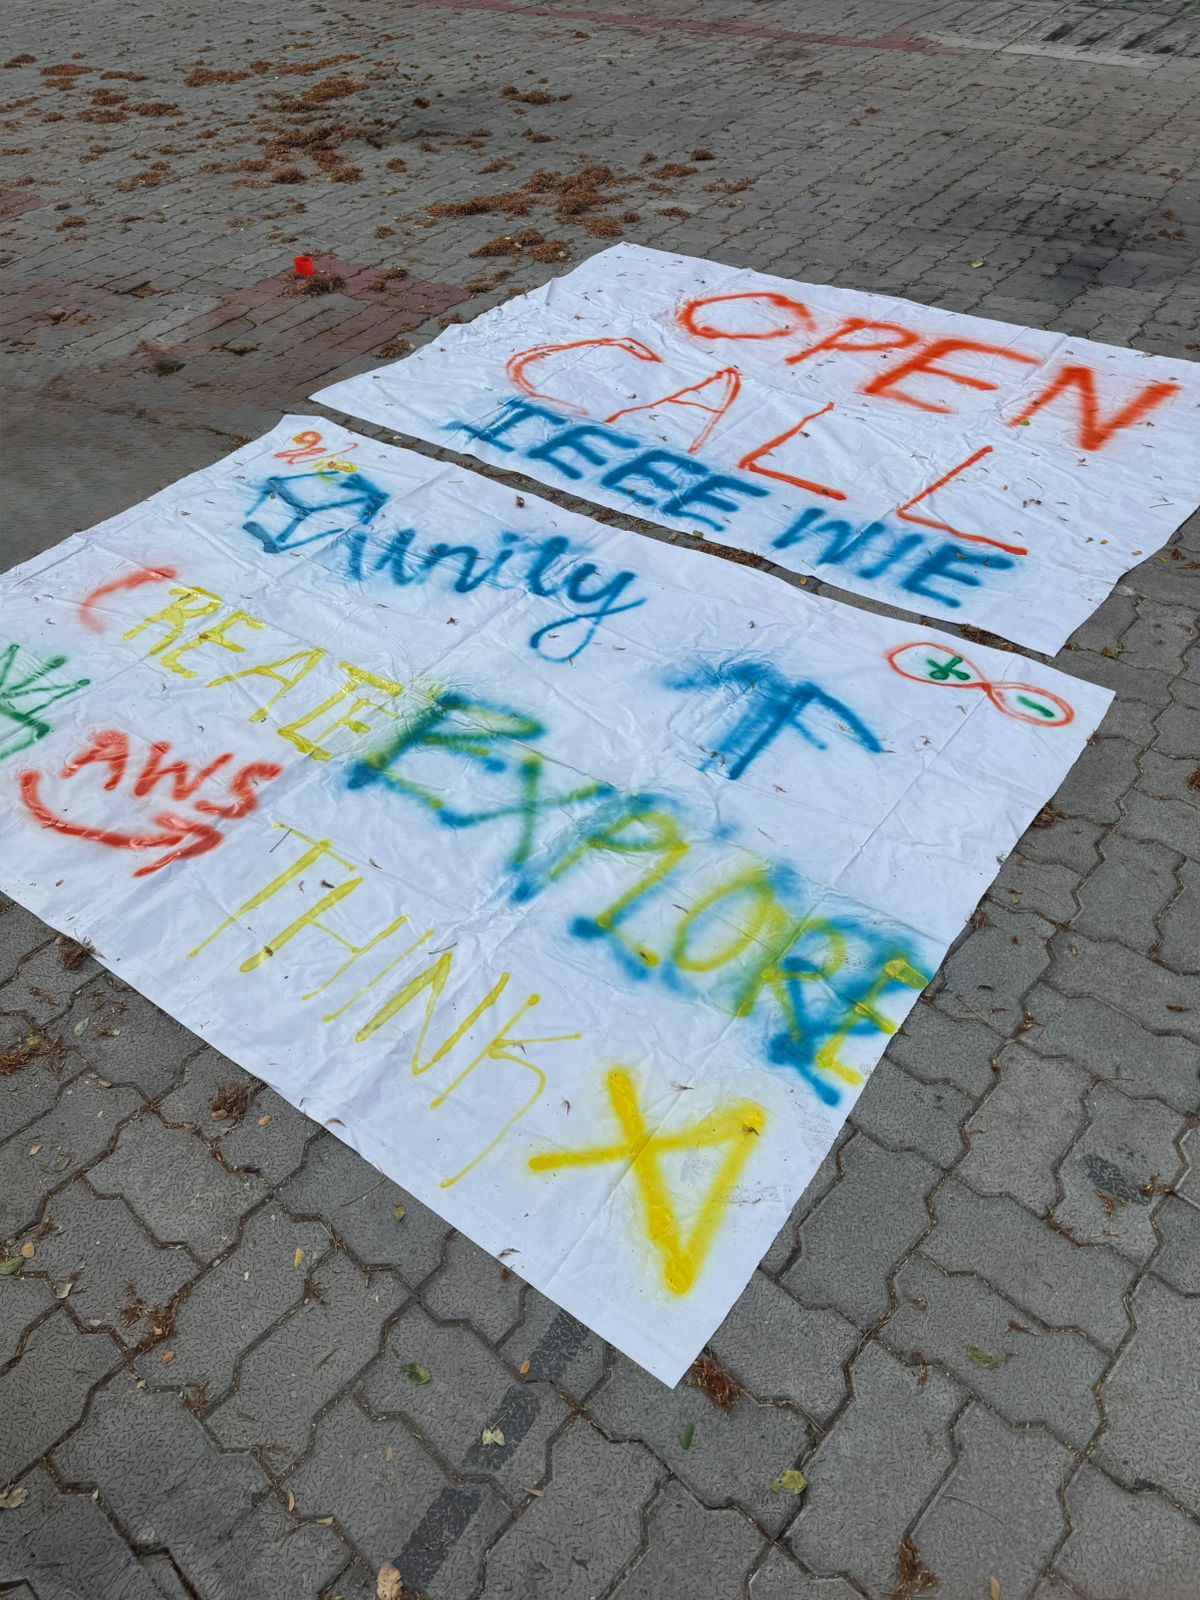 OPEN
CALL
IEEE WIE
unity
CREATE
EXPLORE
AWS
THINK